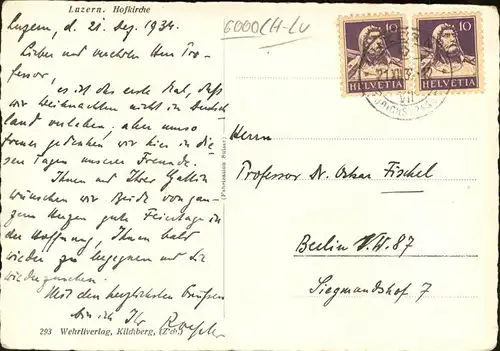 Luzern. Hofkirche
6000CH-LU
Luzern, d. 21. Dez. 1934.
Lieber und verehrter Herr Pro-
fessor,
es ist das erste Mal, daß
wir Weihnachten nicht in Deutsch
land verleben, aber umso
treuer gedenken wir hier in die
sen Tagen unserer Freunde.
Ihnen und Ihrer Gattin
wünschen wir Beide von gan-
zem Herzen gute Feiertage in
der Hoffnung, Ihnen bald
wieder zu begegnen und Sie
wiederzusehen.
Mit den herzlichsten Grüßen
bin ich Ihr
293 Wehrliverlag, Kilchberg, (Zch.)
10
HELVETIA
10
HELVETIA
Herrn
Professor Dr. Oskar Fischel
Berlin N.W. 87
Siegmundshof 7